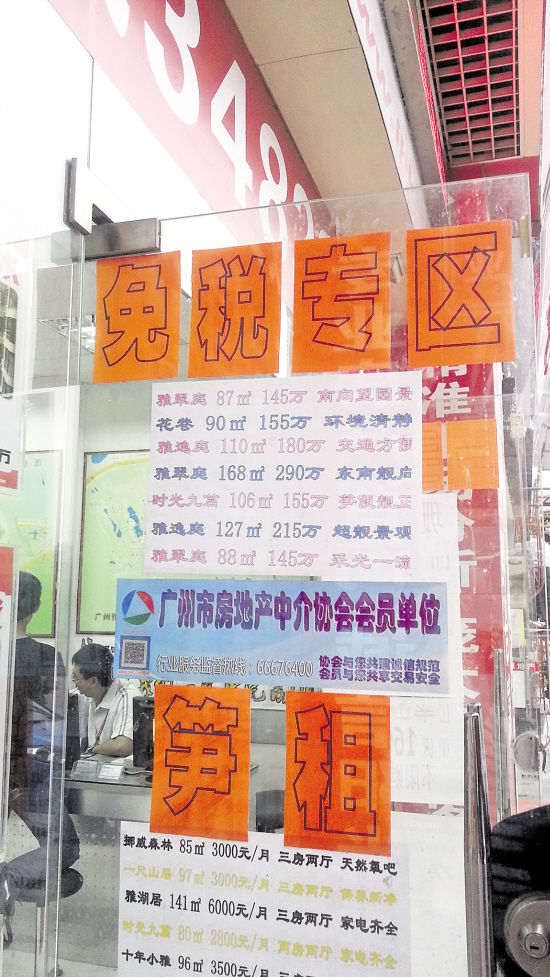 348
免税专区
雅翠庭 87㎡ 145万 南向望园景
花巷 90㎡ 155万 环境清静
雅逸庭 110㎡ 180万 交通方便
雅翠庭 168㎡ 290万 东南靓后
时光九篇 106㎡ 155万 笋靓正
雅逸庭 127㎡ 215万 超靓景观
雅翠庭 88㎡ 145万 采光一流
广州市房地产中介协会会员单位
行业服务监督热线：66676400
协会与您共建诚信规范
会员与您共享交易安全
笋租
挪威森林 85㎡ 3000元/月 三房两厅 天然氧吧
一尺山居 97㎡ 3000元/月 三房两厅 保养新净
雅湖居 141㎡ 6000元/月 三房两厅 家电齐全
时光九篇 80㎡ 2800元/月 两房两厅 家电齐全
十年小雅 96㎡ 3500元/月 三房两厅
准
万
广州